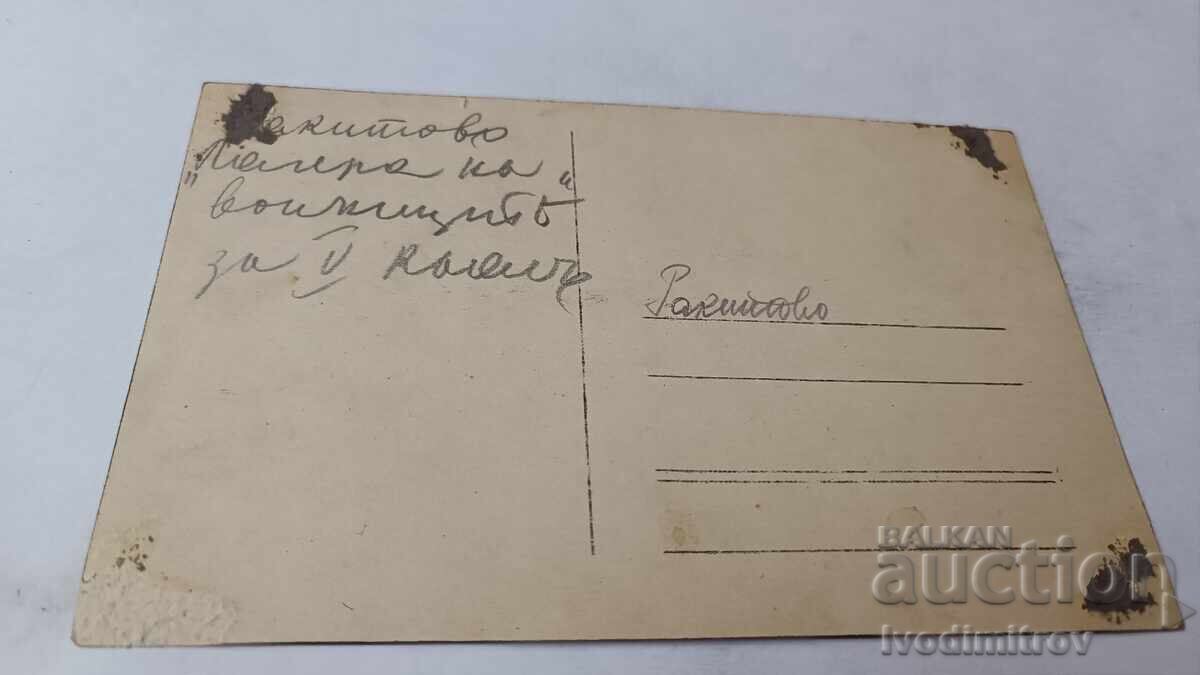 Ракитово
„Лагера на "
войницитѣ
за V
Ракитово
BALKAN
auction
Ivodimitrov